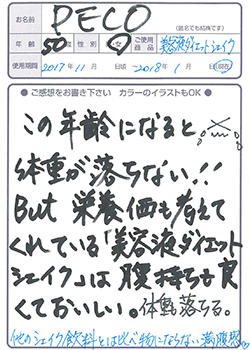 お名前 PECO
(匿名でも結構です)
年齢 50 性別 女 ご使用商品 美容液ダイエットシェイク
使用期間 2017年11月 日頃 ~2018年1月 日(現在)
●ご感想をお書き下さい カラーのイラストもOK●
この年齢になると
体重が落ちない!!
But 栄養価も考えて
くれている「美容液ダイエット
シェイク」は腹持ちも良
くておいしい。体重も落ちる。
他のシェイク飲料とは比べ物にならない満腹感。